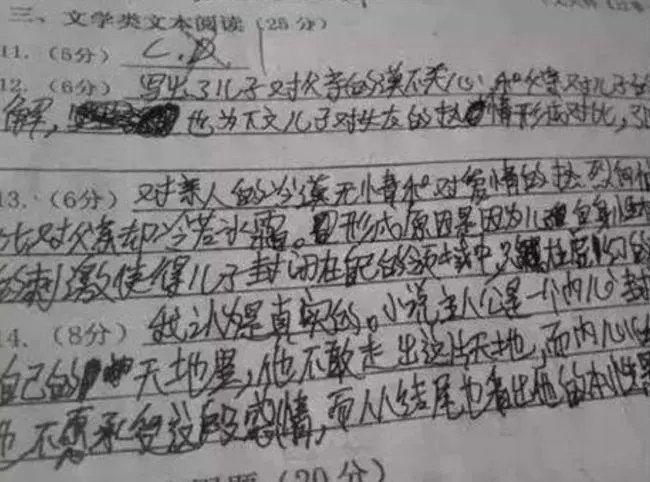 三、文学类文本阅读（25分）
11.（5分） C. D.
12.（6分） 写出了儿子对父亲的漠不关心，和父亲对儿子的
解， 也为下文儿子对女友的热情形成对比，
13.（6分） 对亲人的冷漠无情和对爱情的热烈
比对父亲却冷若冰霜。形成原因是因为儿子自身
的刺激使得儿子封闭在自己的领域中，
我认为是真实的。小说主人公是一个内心封
14.（8分）
自己的 天地里，他不敢走出这片天地，而内心
他不愿承受这段感情，而从结尾也看出他的本性
（20分）